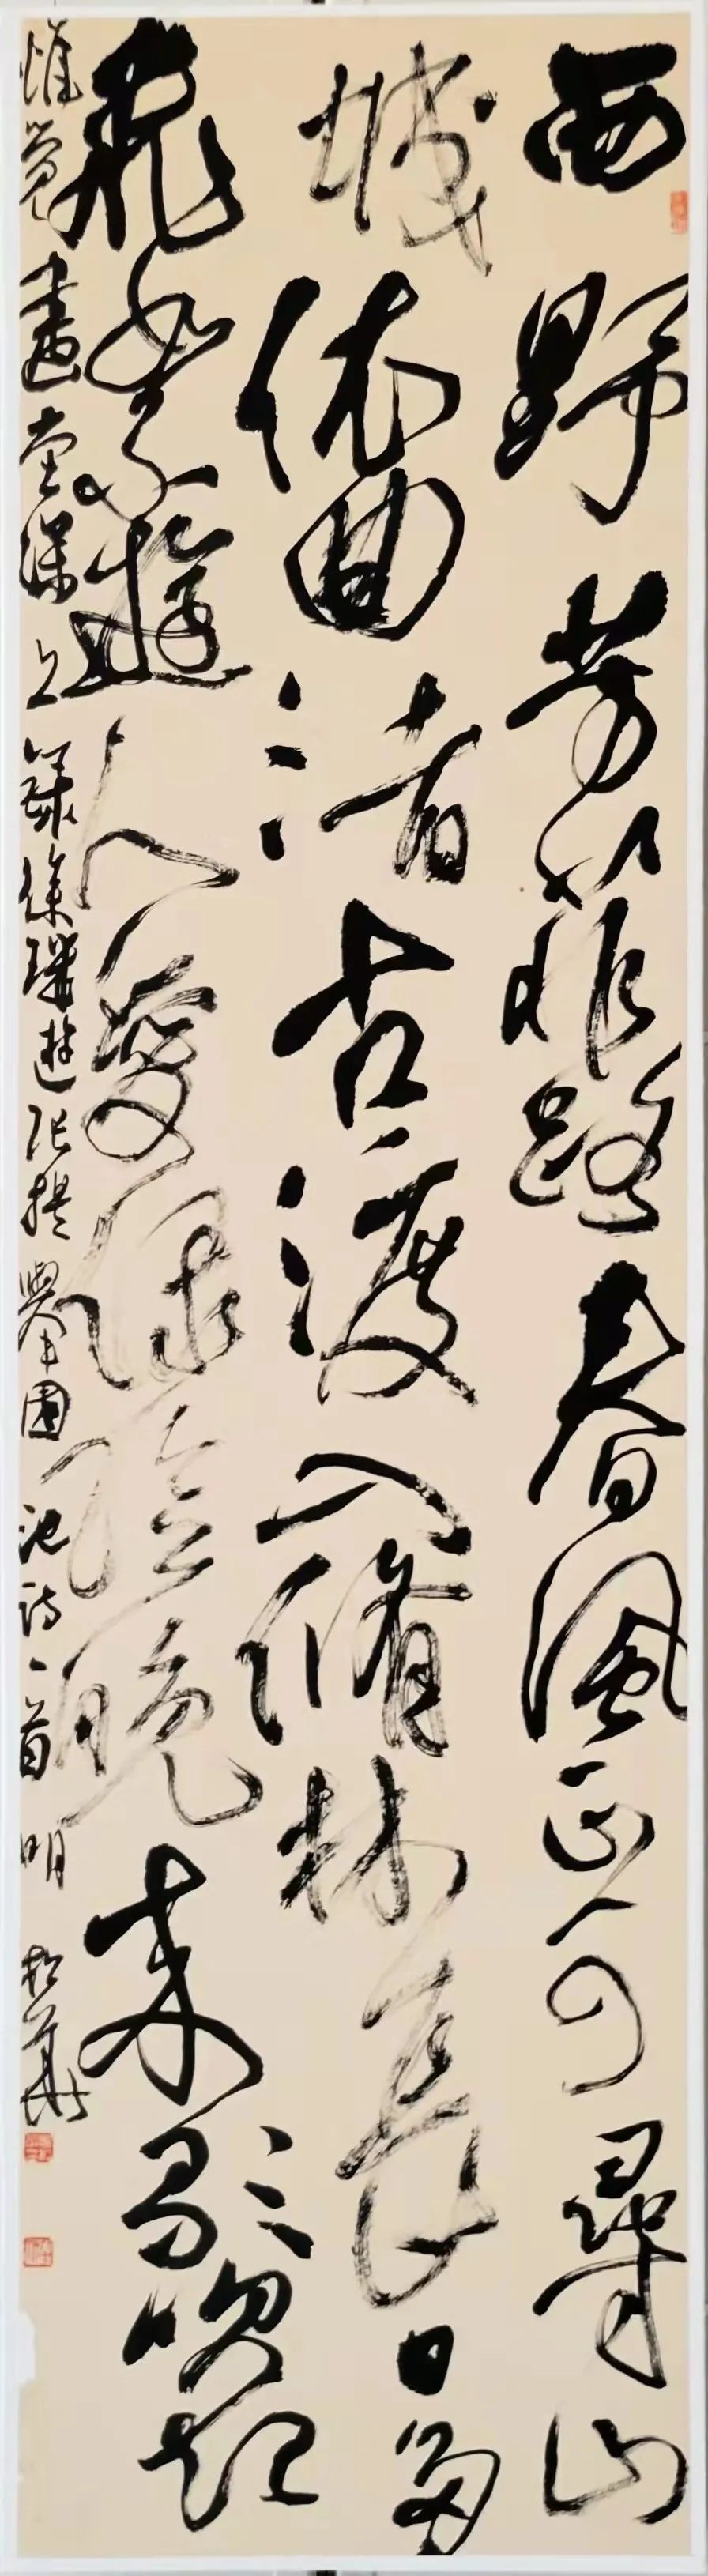 西野芳菲路春風正可尋山
城依曲渚古渡入脩林長日多
飛絮遊人愛綠陰晚來歌吹起
惟覺畫堂深上錄徐璣遊張提舉園池詩一首明